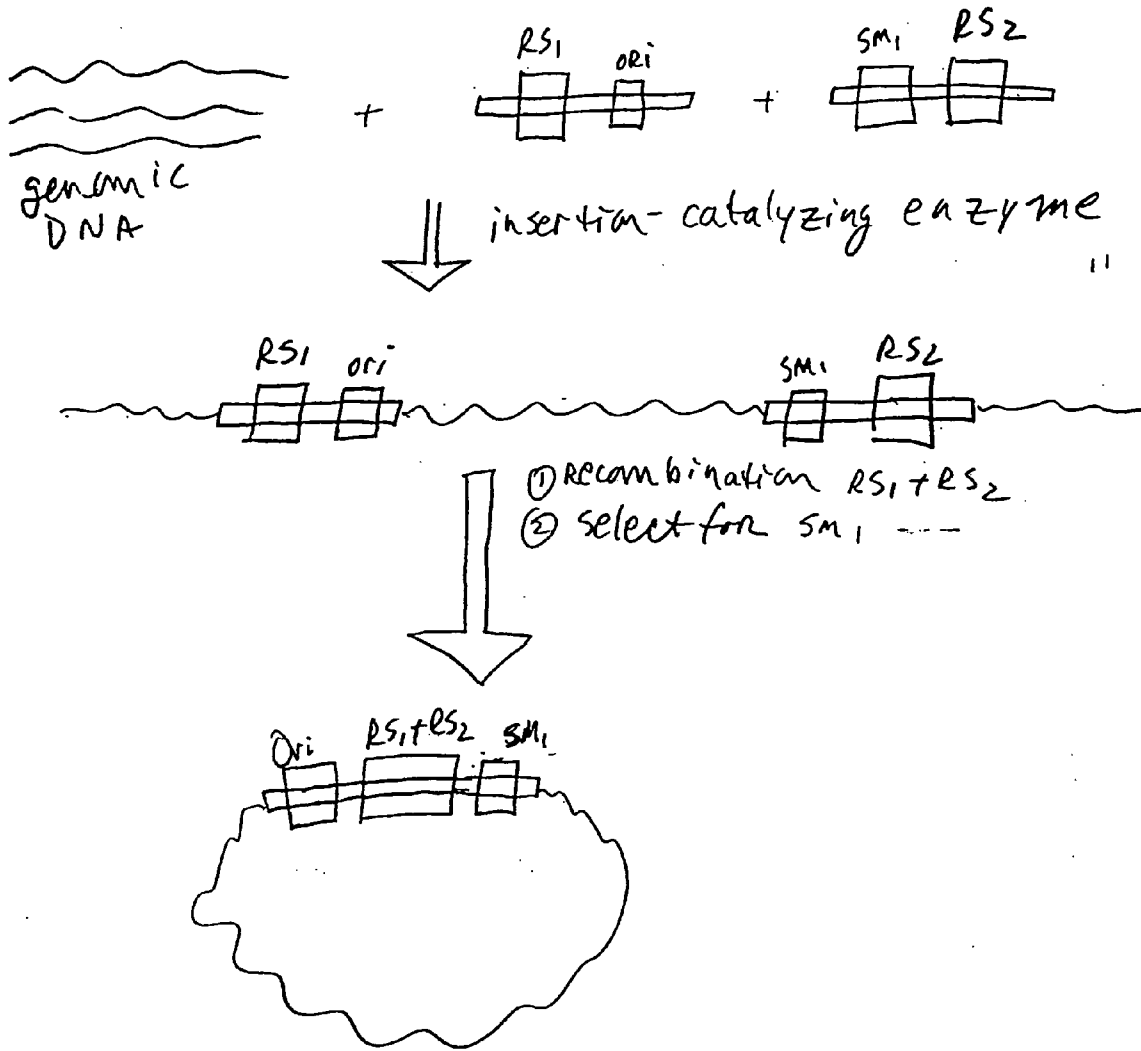 RS1 ORi SM1 RS2
+ +
genomic
DNA
insertion-catalyzing enzyme
RS1 ori SM1 RS2
① Recombination RS1 + RS2
② select for SM1 ----
Ori RS1+RS2 SM1